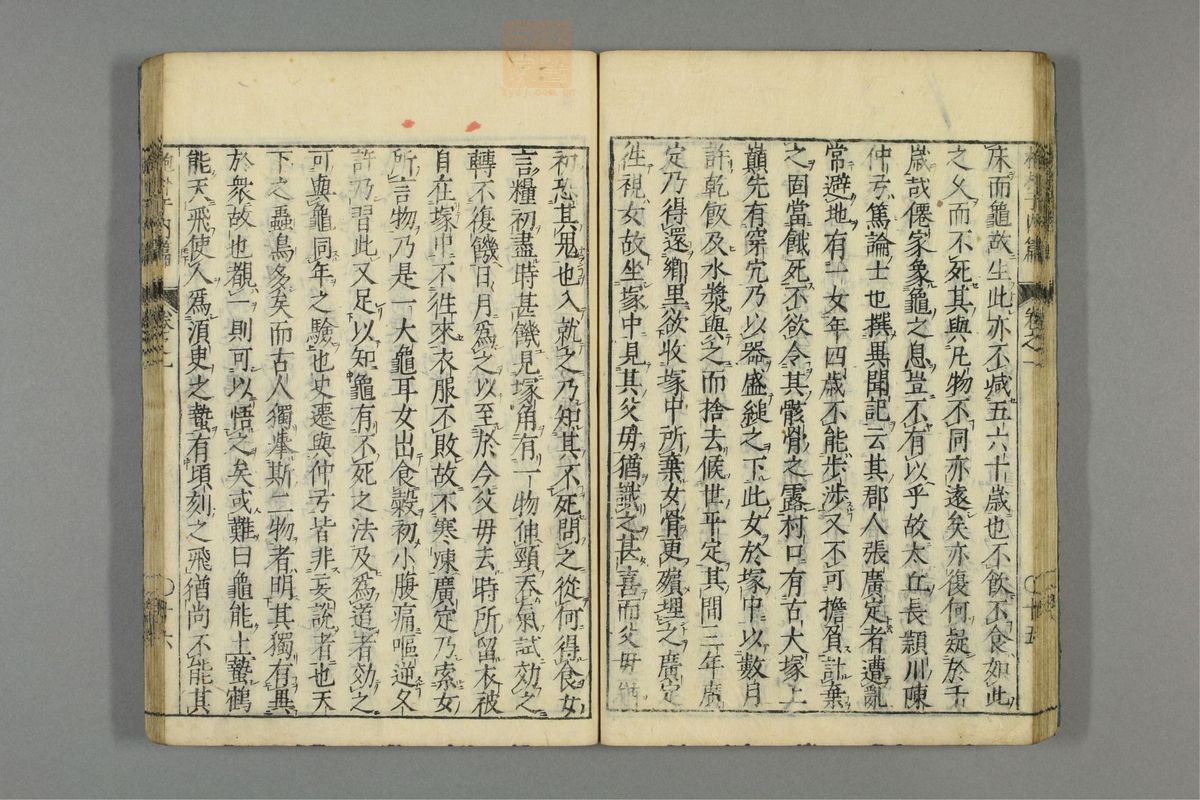 牀而龜故生此亦不减五六十歳也不飲不食如此
之久而不死其與凡物不同亦遠矣亦復何疑於千
歳哉僊家象龜之息豈不有以乎故太丘長頴川陳
仲弓篤論士也撰異聞記云其郡人張廣定者遭亂
常避地有一女年四歳不能步涉又不可擔負計棄
之固當餓死不欲令其骸骨之露村口有古大塚上
巔先有穿穴乃以器盛縋之下此女於塚中以數月
許乾飯及水漿與之而捨去候世平定其間三年廣
定乃得還鄉里欲收塚中所棄女骨更殯埋之廣定
徃視女故坐塚中見其父毋猶識之甚喜而父毋
初恐其鬼也入就之乃知其不死問之從何得食女
言糧初盡時甚饑見塚角有一物伸頸吞氣試効之
轉不復饑日月爲之以至於今父毋去時所留衣被
自在塚中不徃來衣服不敗故不寒凍廣定乃索女
所言物乃是一大龜耳女出食穀初小腹痛嘔逆久
許乃習此又足以知龜有不死之法及爲道者効之
可與龜同年之驗也史遷與仲弓皆非妄說者也天
下之蟲鳥多矣而古人獨舉斯二物者明其獨有異
於衆故也覩一則可以悟之矣或難曰龜能土蟄鶴
能天飛使人爲湏臾之蟄有頃刻之飛猶尚不能其